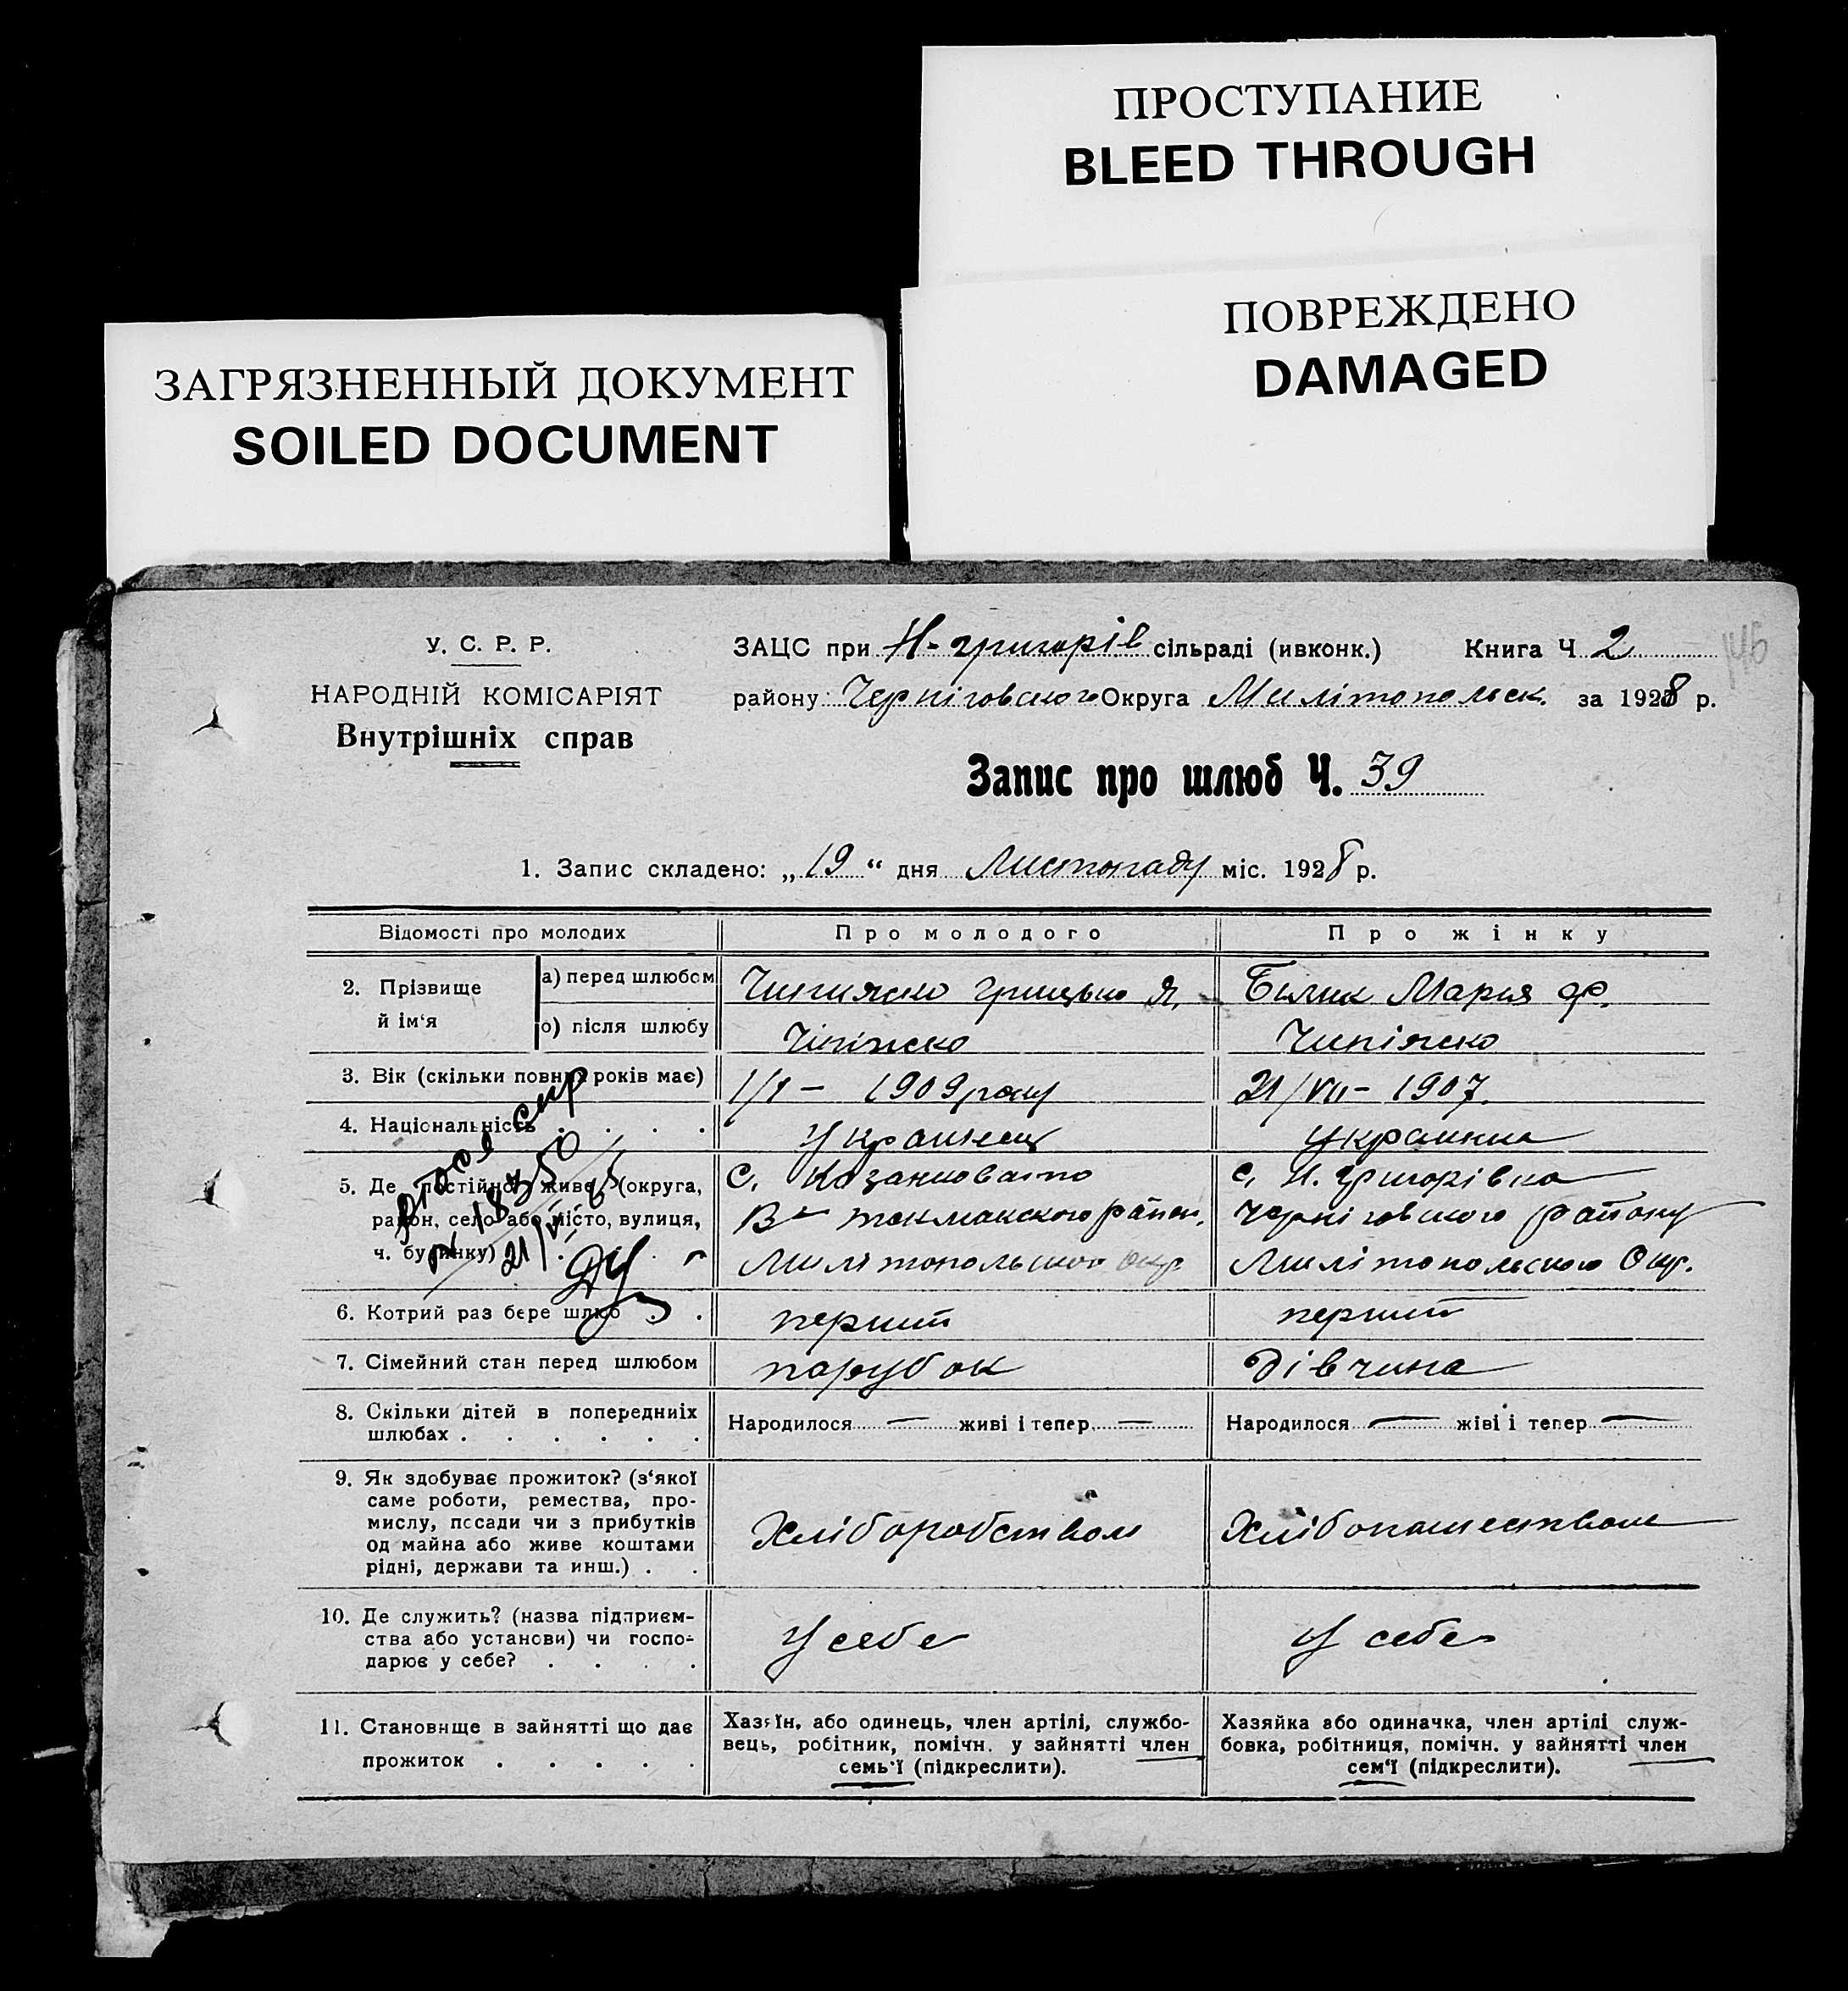 ПРОСТУПАНИЕ
BLEED THROUGH
ПОВРЕЖДЕНО
DAMAGED
ЗАГРЯЗНЕННЫЙ ДОКУМЕНТ
SOILED DOCUMENT
У. С. Р. Р.
НАРОДНІЙ КОМІСАРІЯТ
Внутрішніх справ
ЗАЦС при Н-Григорів сільраді (ивконк.) Книга Ч 2
146
району Черніговського Округа Милітопольск. за 1928 р.
Запис про шлюб Ч. 39
1. Запис складено: „19“ дня Листопаду міс. 1928 р.
Відомості про молодих
Про молодого
Про жінку
2. Прізвище й ім‘я
а) перед шлюбом
Грицько Я.
Билик Мария Ф.
о) після шлюбу
Чипіяско
3. Вік (скільки повних років має)
1/I – 1909 року
21/VII – 1907.
4. Національність . . . .
Українец
Украинка
5. Де постійно живе (округа,
район, село або місто, вулиця,
ч. будинку) . . .
с. Козакновато
В- токмакского район.
Милітопольского Окр
с. Н. Григорівка
Чернігобского району
Милітопольского Окр.
№ 18350
21/VI-65
6. Котрий раз бере шлюб . .
первий
первий
7. Сімейний стан перед шлюбом
парубок
дівчина
8. Скільки дітей в попередниіх
шлюбах . . . . . .
Народилося — живі і тепер —
Народилося — жіві і тепер —
9. Як здобуває прожиток? (з‘якої
саме роботи, ремества, про-
мислу, посади чи з прибутків
од майна або живе коштами
рідні, держави та инш.) . .
Хліборобством
Хлібопашеством
10. Де служить? (назва підприєм-
ства або установи) чи госпо-
дарює у себе? . . . .
У себе
У себе
11. Становище в зайнятті що дає
прожиток . . . . .
Хазяїн, або одинець, член артілі, службо-
вець, робітник, помічн. у зайнятті член
семь‘ї (підкреслити).
Хазяйка або одиначка, член артілі служ-
бовка, робітниця, помічн. у зайнятті член
сем‘ї (підкреслити).